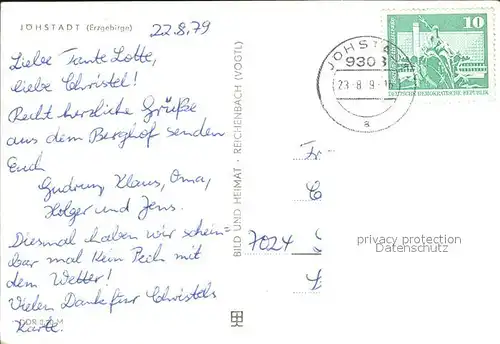 JÖHSTADT (Erzgebirge)
22.8.79
Liebe Tante Lotte,
liebe Christel!
Recht herzliche Grüße
aus dem Berghof senden
Euch
Gudrun, Klaus, Oma,
Holger und Jens.
Diesmal haben wir schein=
bar mal kein Pech mit
dem Wetter!
Vielen Dank für Christels
Karte.
BILD UND HEIMAT · REICHENBACH (VOGTL)
JÖHSTA
930
23-8.9-16
a
10
DEUTSCHE DEMOKRATISCHE REPUBLIK
Fr
7024
privacy protection
www.oldthing.de